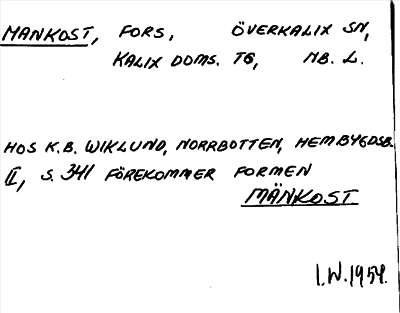 MANKOST, FORS, ÖVERKALIX SN,
KALIX DOMS. TG, NB. L.
HOS K.B. WIKLUND, NORRBOTTEN, HEMBYGDSB.
II, S. 341 FÖREKOMMER FORMEN
MÄNKOST
I.W. 1954.